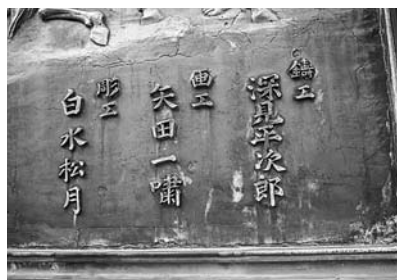 鋳工
深見平次郎
画工
矢田一嘯
彫工
白水松月